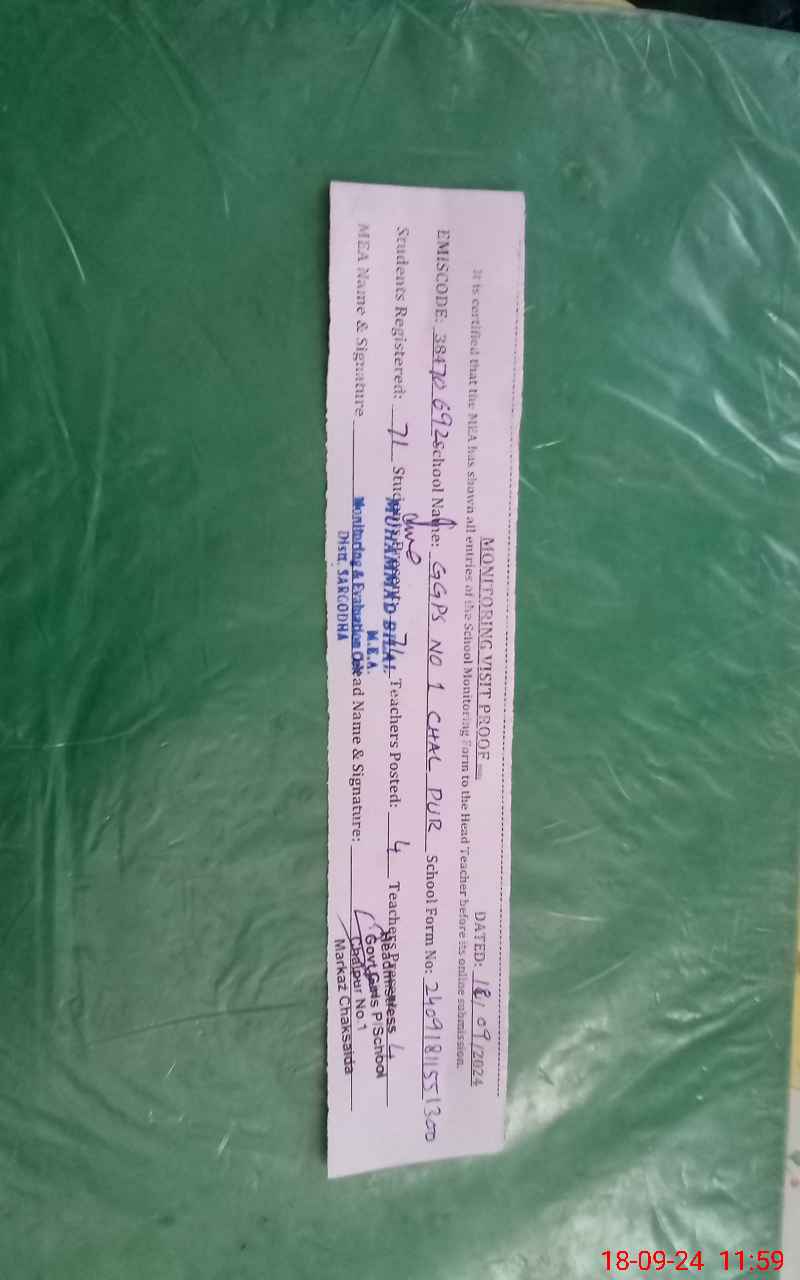 MONITORING VISIT PROOF DATED: 18/09/2024
It is certified that the MEA has shown all entries of the School Monitoring Form to the Head Teacher before its online submission.
EMISCODE: 38470692 School Name: GGPS NO 1 CHAL PUR School Form No:
Students Registered: 71 Teachers Posted: 4 Teachers 4
MEA Name & Signature Head Name & Signature:
MUHAMMAD BILAL
M.E.A.
Monitoring & Evaluation
Distt. SARGODHA
Headmistress
Govt. Girls P/School
Chalpur No.1
Markaz Chaksaida
18-09-24 11:59